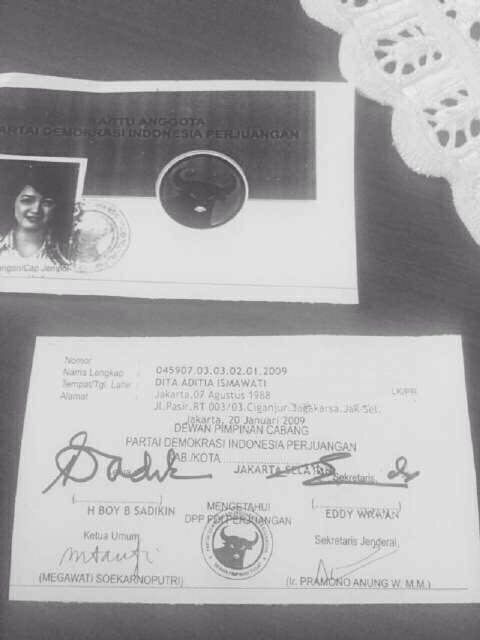 KARTU ANGGOTA
PARTAI DEMOKRASI INDONESIA PERJUANGAN
angan/Cap Jempol
Nomor : 045907.03.03.02.01.2009
Nama Lengkap : DITA ADITIA ISMAWATI
Tempat/Tgl. Lahir : Jakarta,07 Agustus 1988 LK/PR
Alamat : Jl.Pasir,RT 003/03,Ciganjur.Jagakarsa.JaK-Sel.
Jakarta, 20 Januari 2009
DEWAN PIMPINAN CABANG
PARTAI DEMOKRASI INDONESIA PERJUANGAN
KAB./KOTA JAKARTA SELATAN
Sekretaris,
H BOY B SADIKIN
EDDY
MENGETAHUI
DPP PDI PERJUANGAN
Ketua Umum
Sekretaris Jenderal,
(MEGAWATI SOEKARNOPUTRI)
(Ir. PRAMONO ANUNG W. M.M.)